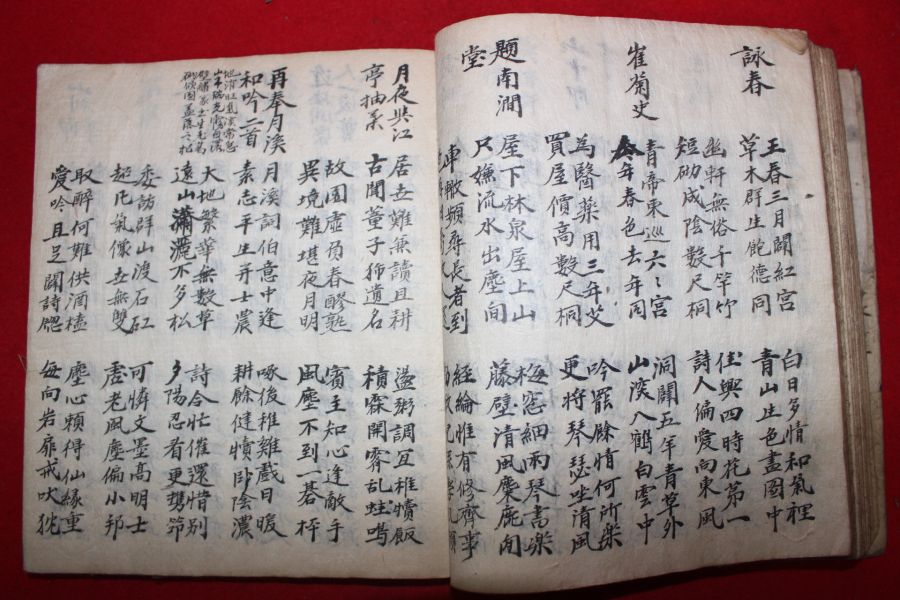 詠春
王春三月闢紅宮
白日多情和氣裡
草木群生飽德同
青山生色畫圖中
幽軒無俗千竿竹
佳興四時花第一
短砌成陰數尺桐
詩人偏愛向東風
崔菊史
青帝東巡六〻宮
洞闢五年青草外
今年春色去年同
山深入鶴白雲中
為醫藥用三年艾
吟罷餘情何所樂
買屋價高數尺桐
更將琴瑟坐清風
題南澗
堂
屋下林泉屋上山
窓細雨琴書樂
只嫌流水出塵間
藤壁清風麋鹿閒
車轍頻尋長者到
經綸惟有修齊事
月夜與江
亭抽
居士難兼讀且耕
粥調宜椎犢飯
古聞董子遺名
積霖開霽乱蛙鳴
故園虛負春醪熟
賓主知心逢敵手
異境難堪夜月明
風塵不到一碁枰
再奉月溪
和吟二首
月溪詞伯意中逢
啄後稚雞戲日暖
素志平生弃士農
耕餘健犢卧陰濃
大地繁華無數草
詩令忙催還惜別
遠山瀟灑不多松
夕陽忍看更携笻
委訪群山渡石矼
可憐文墨高明士
超凡氣像並無雙
虛老風塵偏小邦
取醉何難供酒榼
塵心賴得仙緣重
愛吟且足闢詩牕
每向岩扉戒吠狵